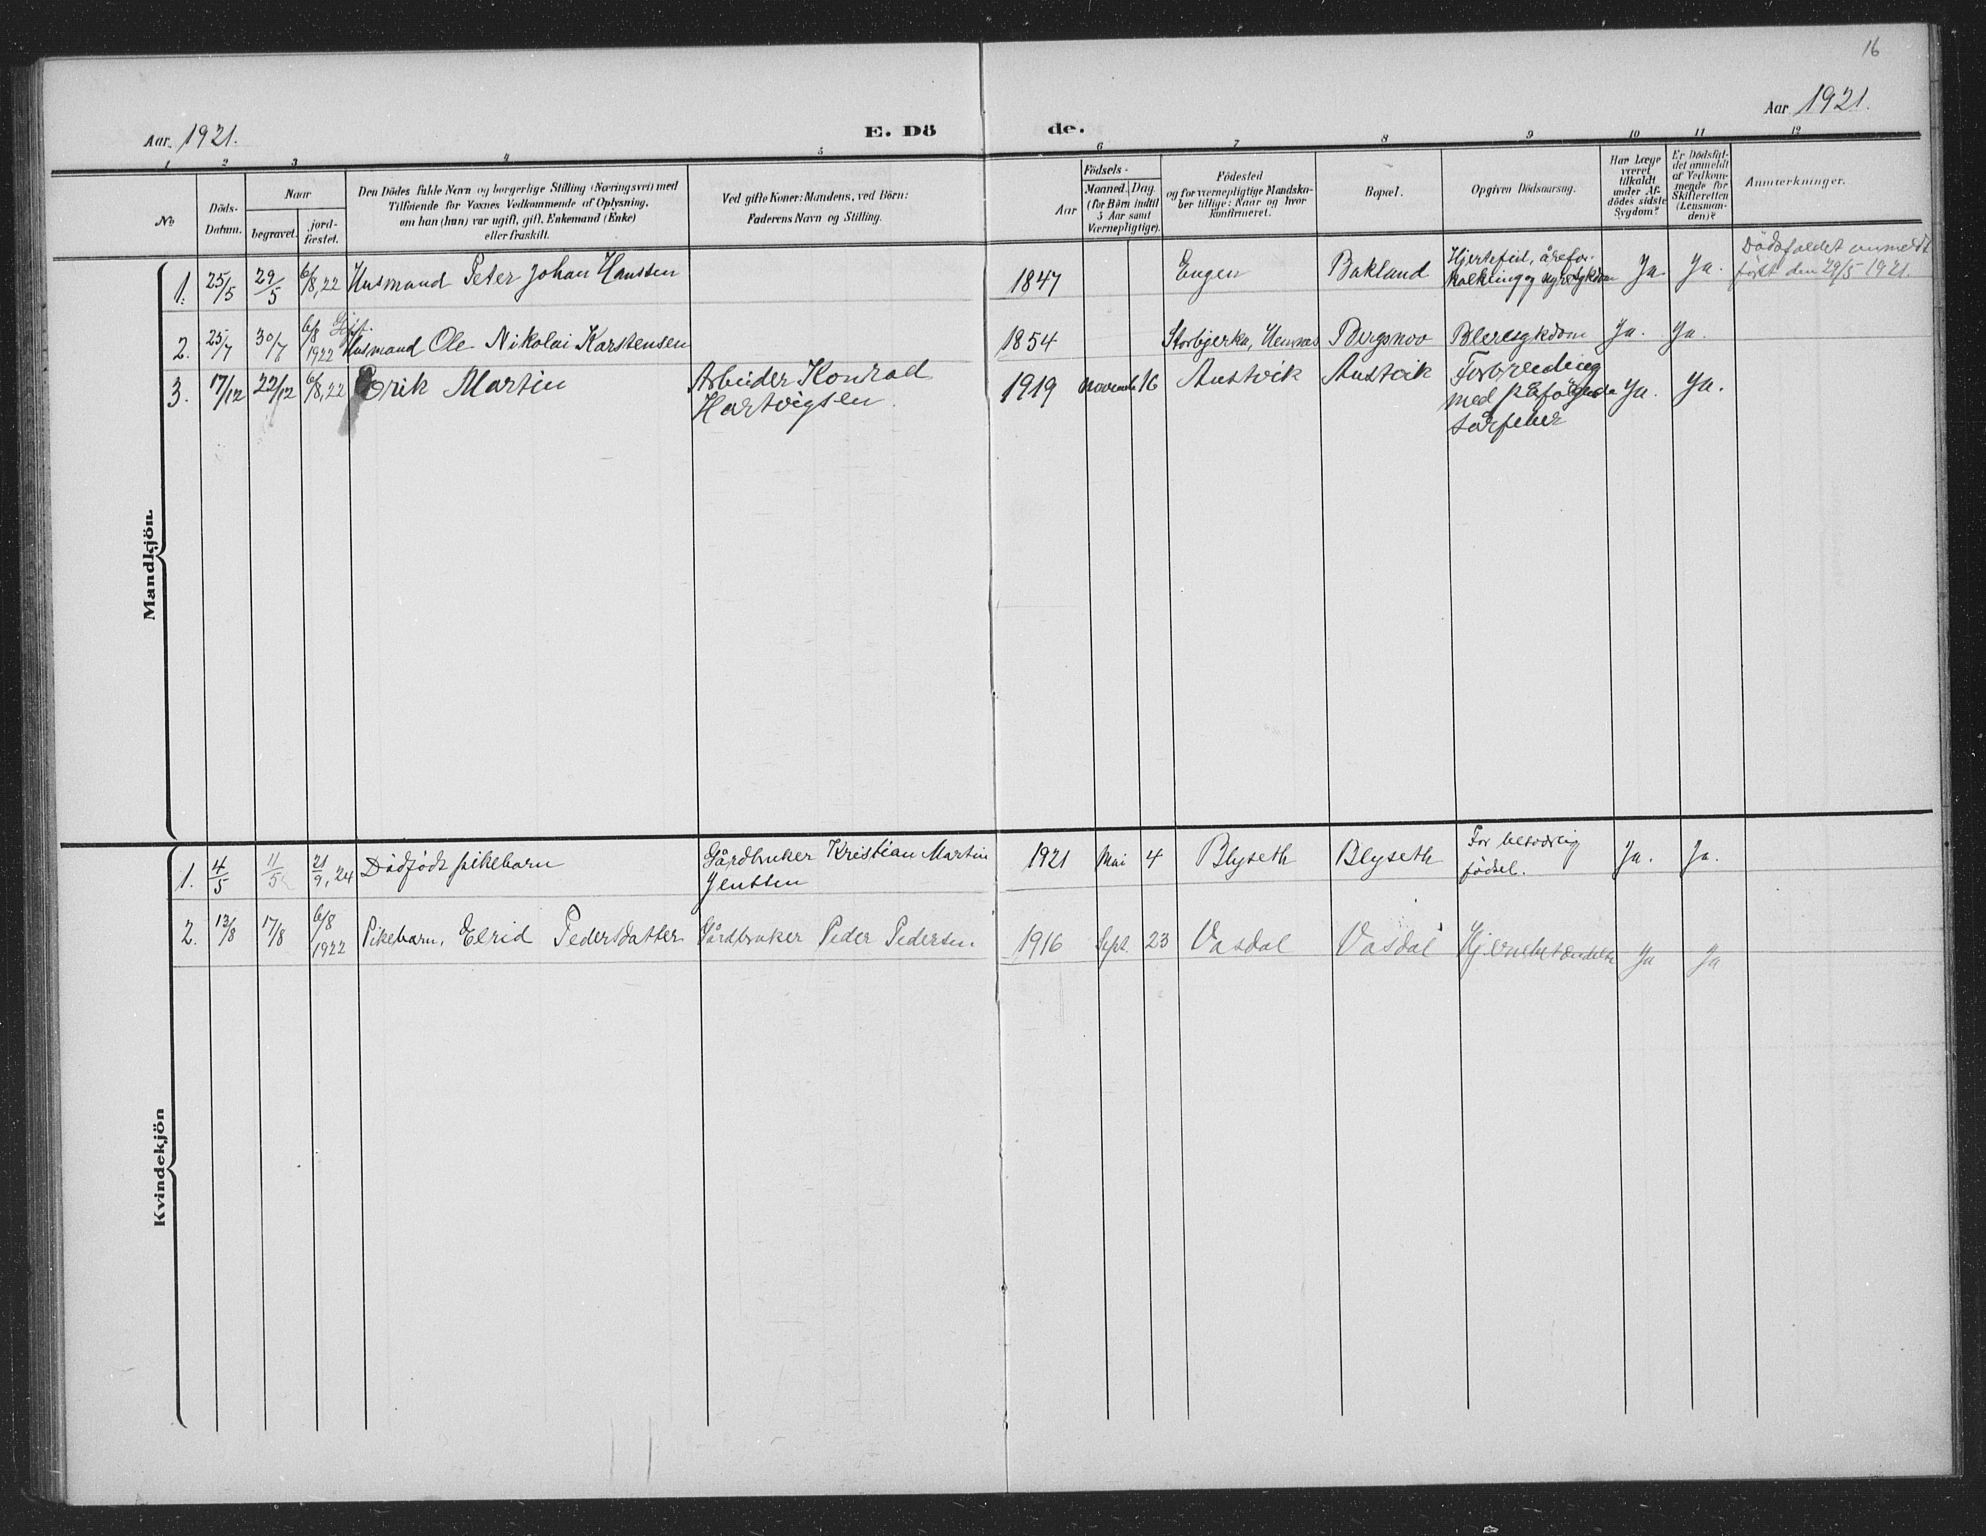 16
Aar 1921.
Aar. 1921.
E. Dö
de.
1 2 3 4 5 6 7 8 9 10 11 12
No
Döds-
Datum.
Naar
begravet.
jord-
fæstet.
Den Dödes fulde Navn og borgerlige Stilling (Næringsvei) med
Tilföiende for Voxnes Vedkommende af Oplysning,
om han (hun) var ugift, gift, Enkemand (Enke)
eller fraskilt.
Ved gifte Koner: Mandens, ved Börn:
Faderens Navn og Stilling.
Födsels-
Aar
Maaned. Dag.
(for Börn indtil
5 Aar samt
Værnepligtige).
Födested
og for værnepligtige Mandska-
ber tillige: Naar og hvor
konfirmeret.
Bopæl.
Opgiven Dödsaarsag.
Har Læge
været
tilkaldt
under Af-
dödes sidste
Sygdom?
Er Dödsfal-
det anmeldt
af Vedkom-
mende for
Skifteretten
(Lensman-
den)?
Anmærkninger.
Mandkjön.
1. 25/5 29/5 6/8, 22 Husmand Peter Johan Hanssen 1847 Engen Bakland Hjertefeil, årefor-
kalkning og nyresykdom Ja. Ja. Dödsfaldet anmeldt
först den 29/5 1921.
2. 25/7 30/7 6/8 1922 Gift.
Husmand Ole Nikolai Karstensen 1854 Storbjerka, Hemnes Bergsmo Blæresykdom Ja. Ja.
3. 17/12 22/12 6/8, 22 Erik Martin Arbeider Konrad
Hartvigsen. 1919 November 16 Austvik Austvik Forbrending
med påfölgende
sårfeber Ja. Ja.
Kvindekjön
1. 4/5 11/5 21/9, 24 Dödfödt pikebarn Gårdbruker Kristian Martin
Jenssen 1921 Mai 4 Blyseth Blyseth For besværlig
födsel. Ja. Ja.
2. 13/8 17/8 6/8 1922 Pikebarn, Elrid Pedersdatter Gårdbruker Peder Pedersen 1916 Sept. 23 Vasdal Vasdal Hjernebetændelse Ja Ja